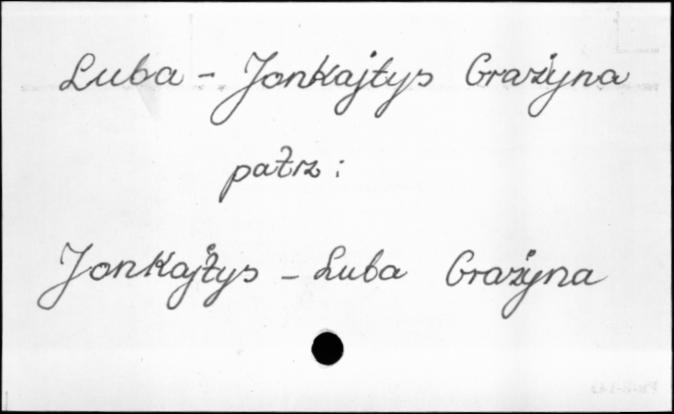 Luba - Jonkajtys Grażyna
patrz :
Jonkajtys - Luba Grażyna